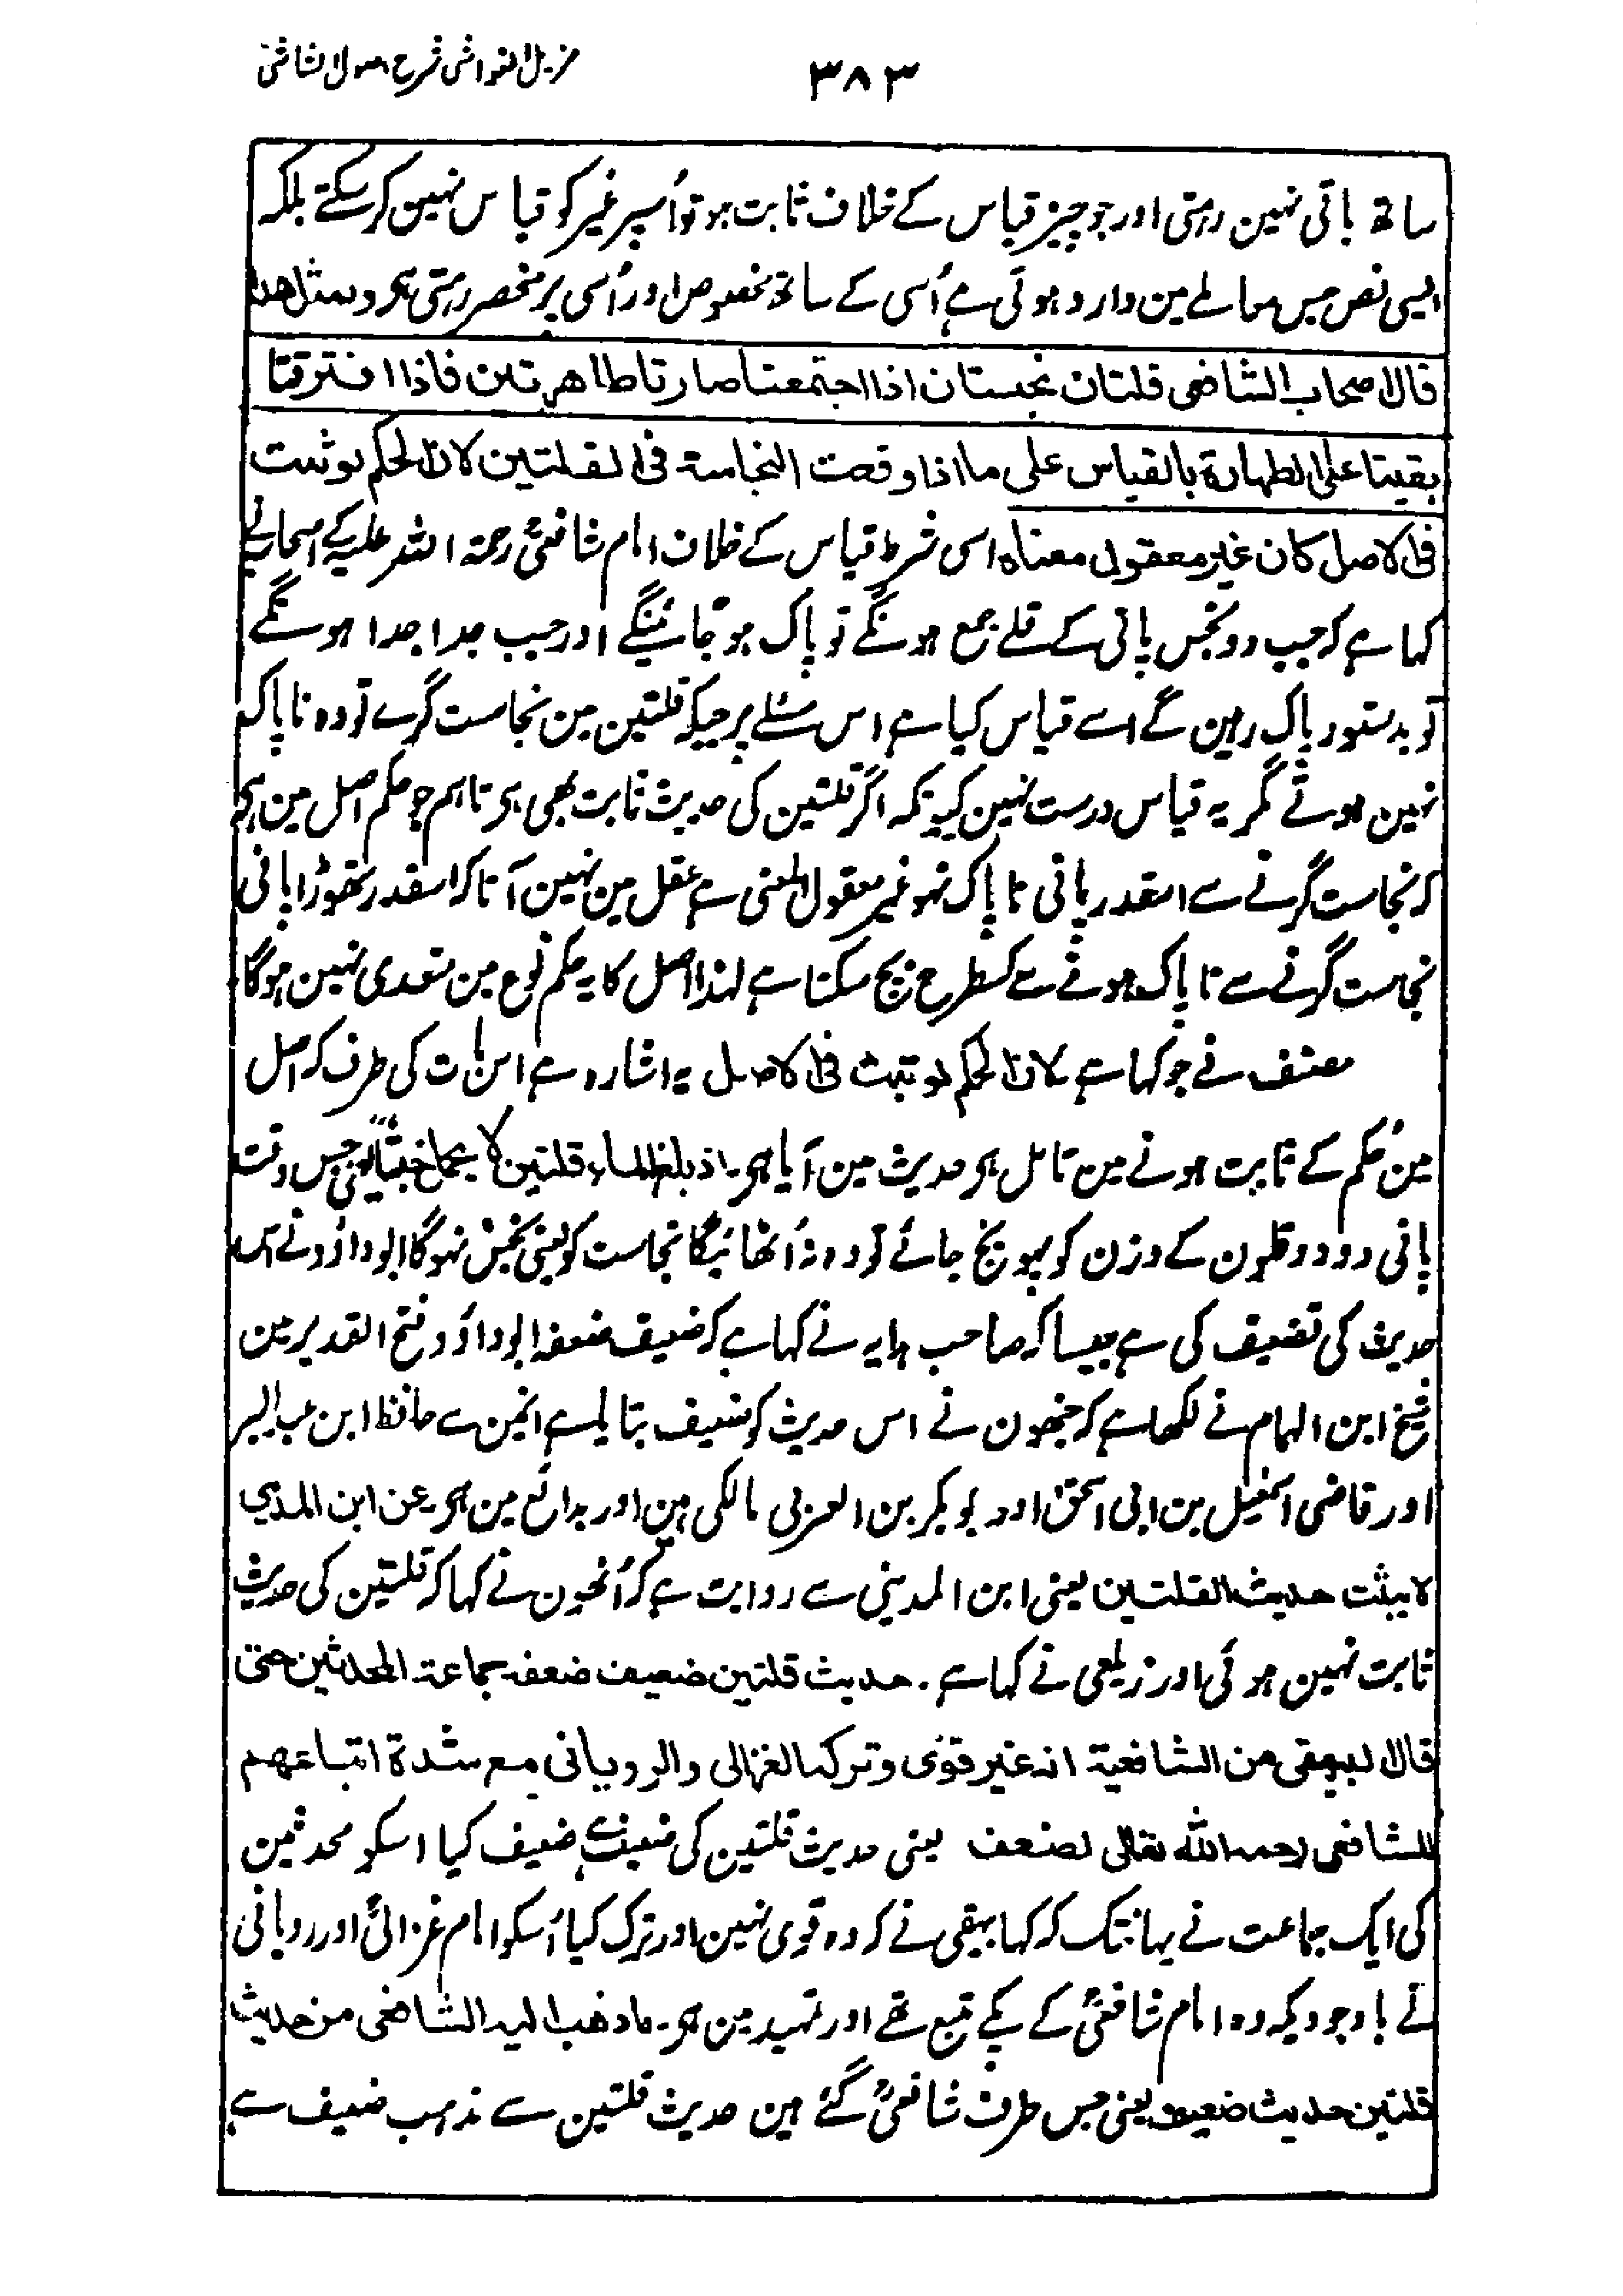 ۳۸۳
مزیل الغواشی شرح اصول الشاشی
ساتھ باقی نہین رہتی اور جو چیز قیاس کے خلاف ثابت ہو تو اُسپر غیر کو قیاس نہین کرسکتے بلکہ
ایسی نص جس معاملے مین وارد ہوئی ہے اُسی کے ساتھ مخصوص اور اُسی پر منحصر رہتی ہی وبمثل هذا
قال اصحاب الشافعی قلتان نجستان اذا اجتمعتا صارتا طاهرتین فاذا افترقتا
بقیتا علی الطهارة بالقیاس علی ما اذا وقعت النجاسة فی القلتین لان الحکم لو ثبت
فی الاصل کان غیر معقول معناہ اسی شرط قیاس کے خلاف امام شافعیؒ رحمۃ اللہ علیہ کے اصحاب نے
کہا ہے کہ جب دو نجس پانی کے قلے جمع ہونگے تو پاک ہوجائینگے اور جب جدا جدا ہونگے
تو بدستور پاک رہین گے اسے قیاس کیا ہے اس مسئلے پر جبکہ قلتین مین نجاست گرے تو وہ ناپاک
نہین ہوتے مگر یہ قیاس درست نہین کیونکہ اگر قلتین کی حدیث ثابت بھی ہو تاہم جو حکم اصل مین ہی
کہ نجاست گرنے سے اسقدر پانی ناپاک نہو غیر معقول المعنی ہے عقل مین نہین آتا کہ اسقدر تھوڑا پانی
نجاست گرنے سے ناپاک ہونے سے کسطرح بچ سکتا ہے لہذا اصل کا یہ حکم فرع مین متعدی نہین ہوگا
مصنف نے جو کہا ہے لان الحکم لو ثبت فی الاصل یہ اشارہ ہے اس بات کی طرف کہ اصل
مین حکم کے ثابت ہونے مین تامل ہی حدیث مین آیا ہی اذ بلغ الماء قلتین لا یحمل خبثا یعنی جس وقت
پانی دو دو قلون کے وزن کو پہونچ جائے تو وہ نہ اُٹھائیگا نجاست کو یعنی نجس نہوگا ابوداؤد نے اس
حدیث کی تضعیف کی ہے جیسا کہ صاحب ہدایہ نے کہا ہے کہ ضعیف ضعفہ ابوداؤد فتح القدیر مین
شیخ ابن الہمام نے لکھا ہے کہ جنھون نے اس حدیث کو ضعیف بتایا ہے انمین سے حافظ ابن عبدالبر
اور قاضی اسمٰعیل بن ابی اسحٰق اور ابوبکر بن العربی مالکی ہین اور بدائع مین ہی عن ابن المدینی
لا یثبت حدیث القلتین یعنی ابن المدینی سے روایت ہے کہ اُنھون نے کہا کہ قلتین کی حدیث
ثابت نہین ہوئی اور زیلعی نے کہا ہے۔ حدیث قلتین ضعیف ضعفه جماعة المحدثین حتی
قال البیهقی من الشافعیة انه غیر قوی وترکه الغزالی والرویانی مع شدة اتباعهم
للشافعی رحمه الله تعالی لضعفه یعنی حدیث قلتین کی ضعیف ہے ضعیف کیا اسکو محدثین
کی ایک جماعت نے یہانتک کہ کہا بیہقی نے کہ وہ قوی نہین اور ترک کیا اُسکو امام غزالیؒ اور رویانی
نے باوجودیکہ وہ امام شافعیؒ کے پکے متبع تھے اور تمہید مین ہی۔ ما ذهب الیه الشافعی من حدیث
قلتین حدیث ضعیف یعنی جس طرف شافعیؒ گئے ہین حدیث قلتین سے مذہب ضعیف ہے